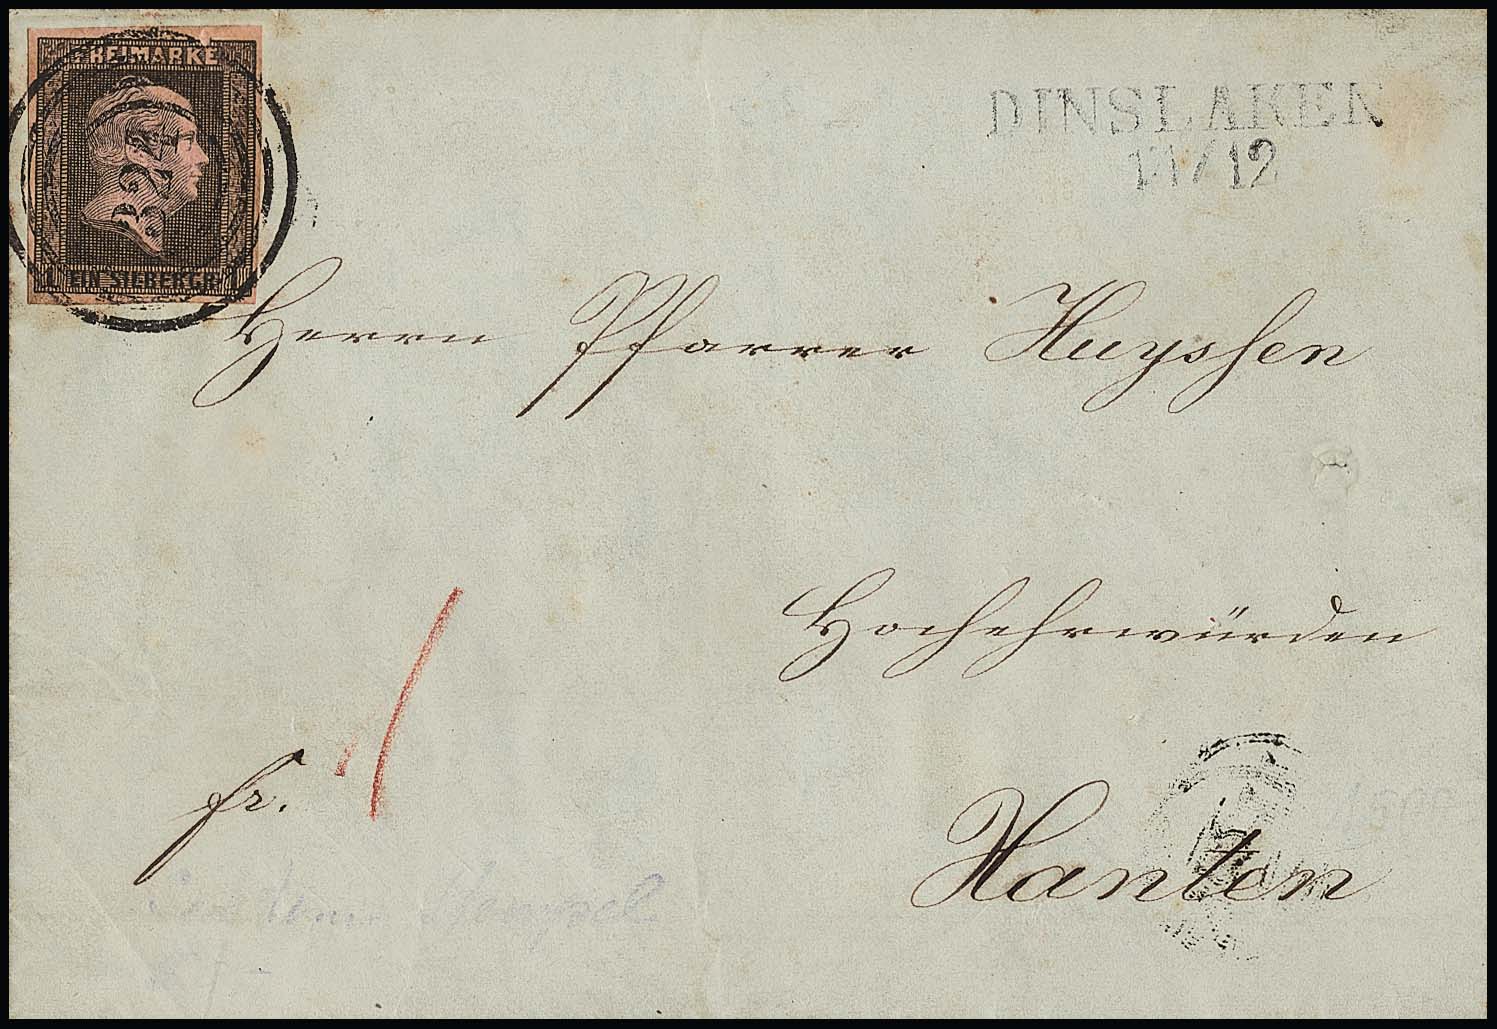 FREIMARKE
324
1 EIN SILBERGR. 1
DINSLAKEN
/12
Herrn Pfarrer Huyssen
Hochehrwürden
fr.
Xanten